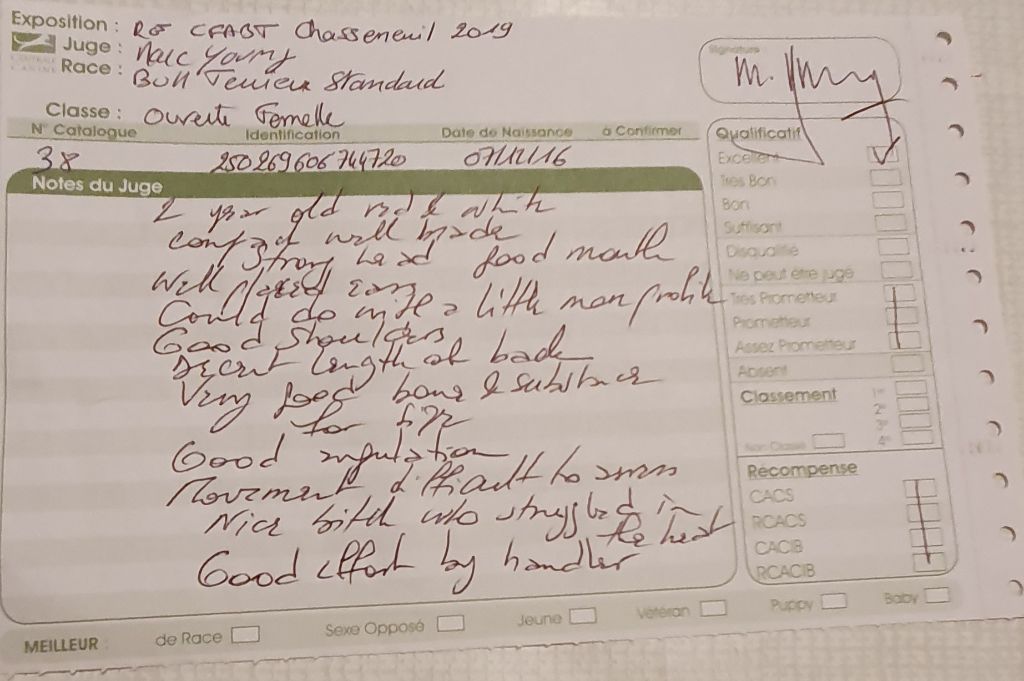 Exposition : RE CFABT Chasseneuil 2019
Juge : Marc Young
Race : Bull Terrier Standard
Classe : Ouverte Femelle
Signature
M. Young
N° Catalogue Identification Date de Naissance à Confirmer
38 250269606744720 07/12/16
Notes du Juge
2 year old red & white
compact well made
Strong head good mouth
Well placed ears
Could do with a little more profile
Good shoulders
Decent length of back
Very good bone & substance
for size
Good angulation
Movement difficult to assess
Nice bitch who struggled in
the heat
Good effort by handler
Qualificatif
Excellent
Très Bon
Bon
Suffisant
Disqualifié
Ne peut être jugé
Très Prometteur
Prometteur
Assez Prometteur
Absent
Classement 1er
2e
3e
Non Classé 4e
Récompense
CACS
RCACS
CACIB
RCACIB
MEILLEUR : de Race Sexe Opposé Jeune Vétéran Puppy Baby